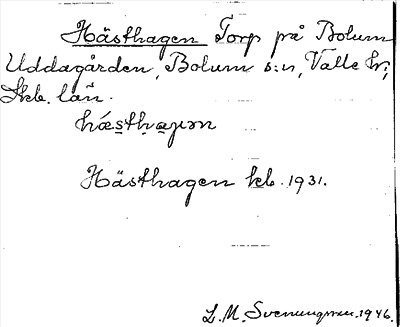 Hästhagen Torp på Bolum
Uddagården, Bolum s:n, Valle hr;
Skb. län.
Hästhagen kb. 1931.
L. M. Svenungsson. 1946.